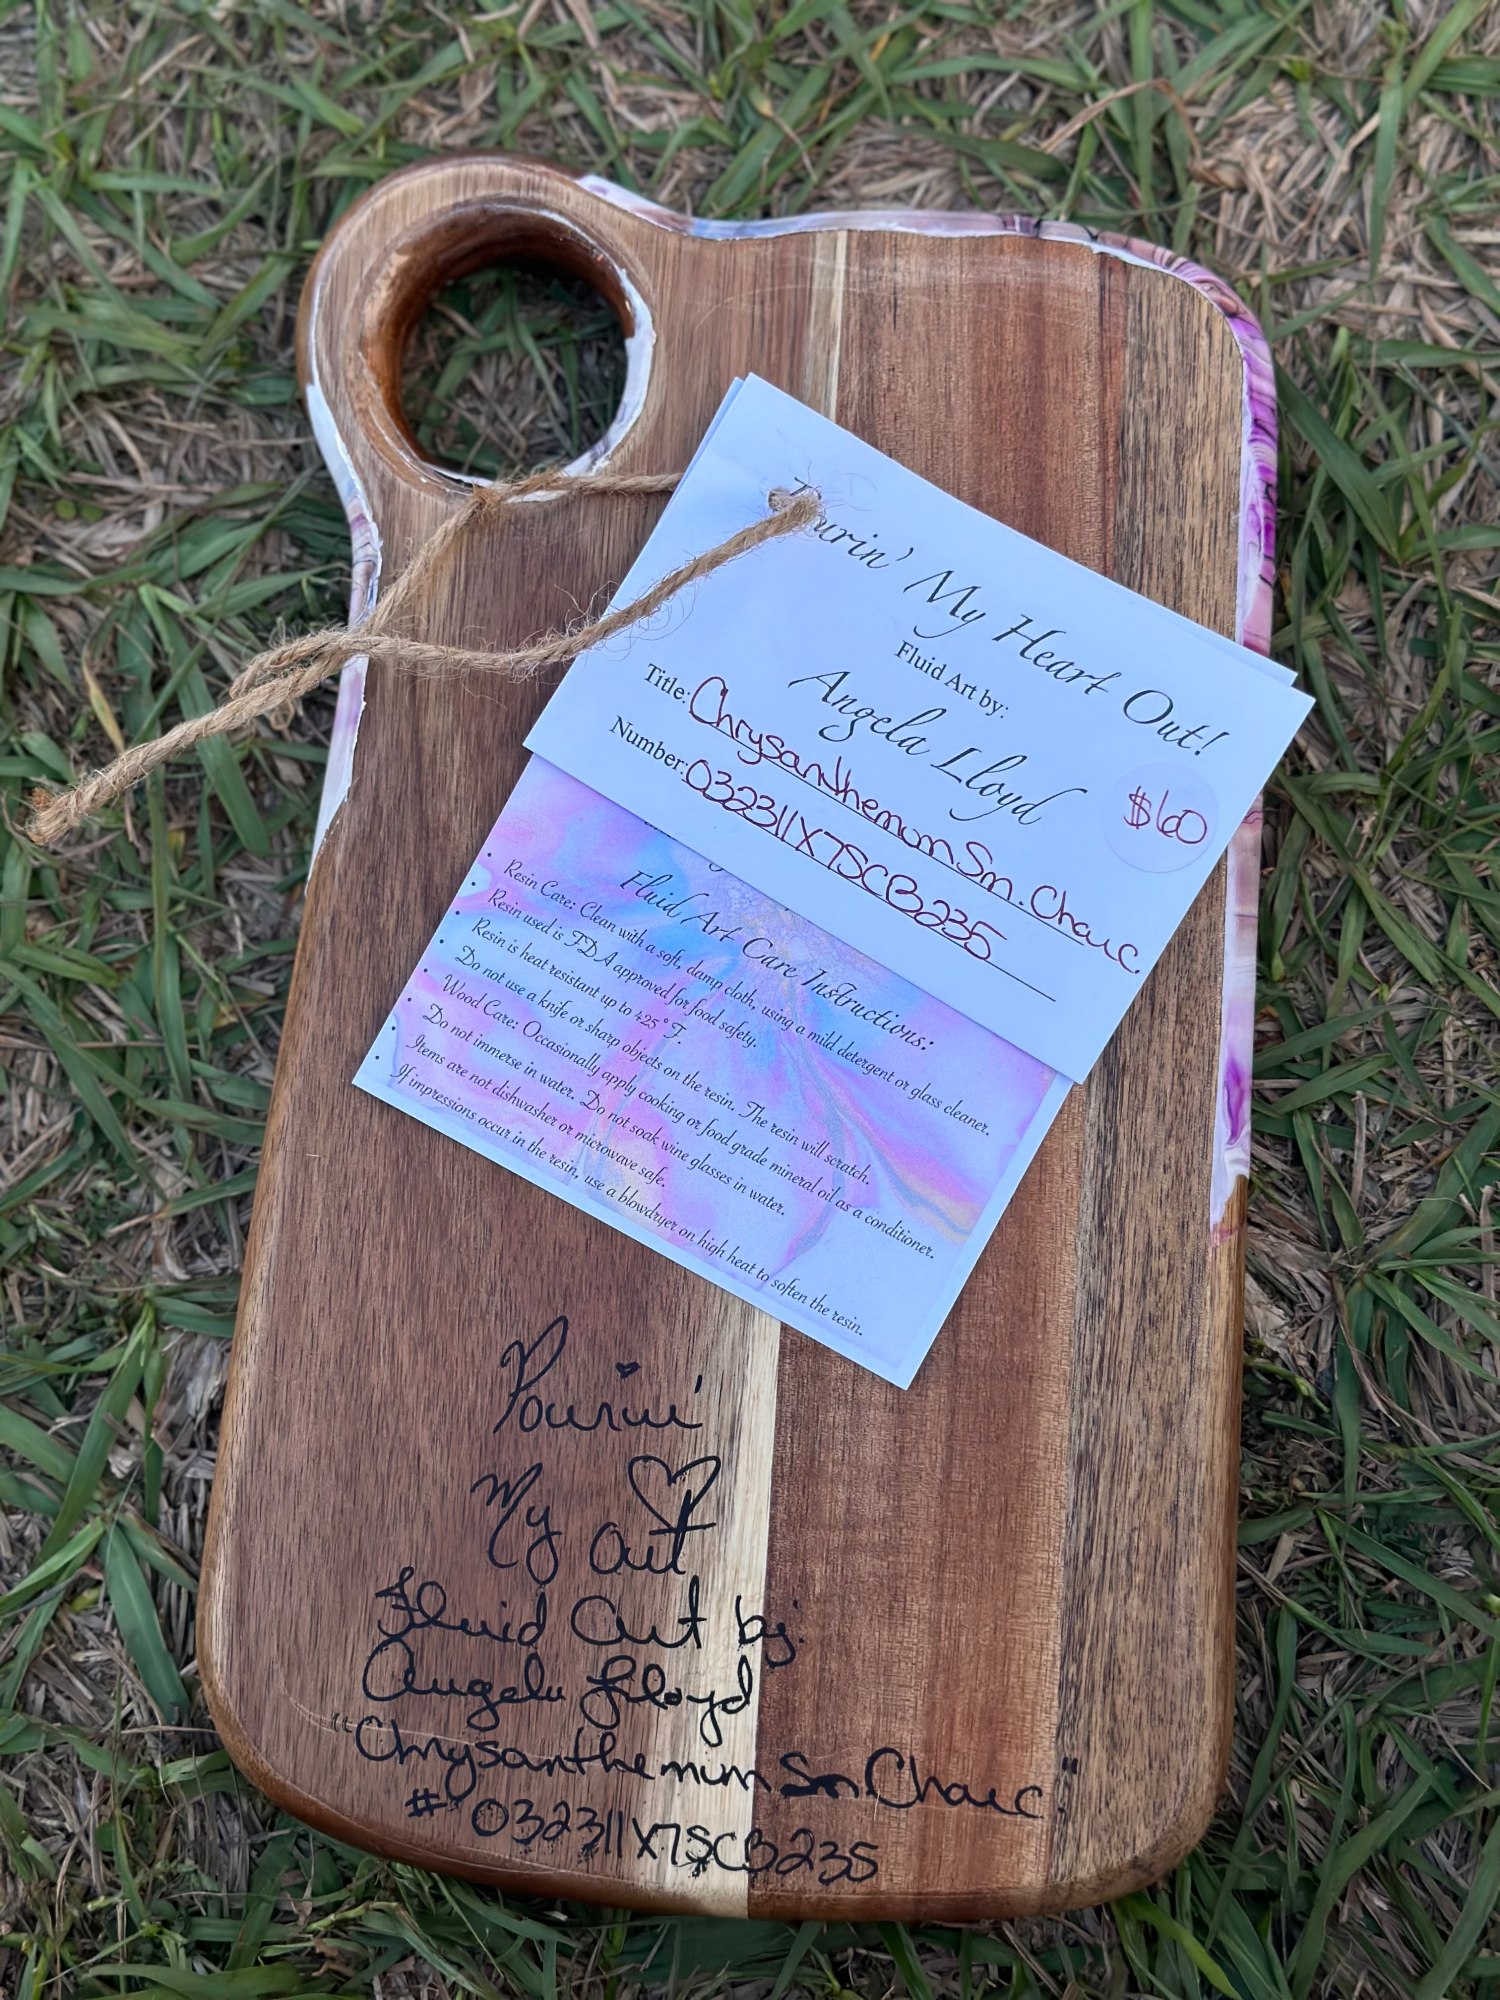 Pourin' My Heart Out!
Fluid Art by:
Angela Lloyd
Title: Chrysanthemum Sm. Charc.
Number: 032311X7SCB235
$60
Fluid Art Care Instructions:
• Resin Care: Clean with a soft, damp cloth, using a mild detergent or glass cleaner.
• Resin used is FDA approved for food safety.
• Resin is heat resistant up to 425° F.
• Do not use a knife or sharp objects on the resin. The resin will scratch.
• Wood Care: Occasionally apply cooking or food grade mineral oil as a conditioner.
• Do not immerse in water. Do not soak wine glasses in water.
• Items are not dishwasher or microwave safe.
• If impressions occur in the resin, use a blowdryer on high heat to soften the resin.
Pourin'
My ♡
Out
Fluid Art by:
Angela Lloyd
"Chrysanthemum Sm. Charc."
# 032311X7SCB235